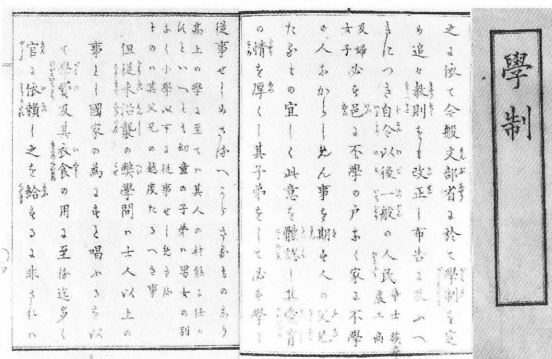 學制
之に依て今般文部省に於て學制を定
め追々敎則をも改正し布告に及ふへ
きにつき自今以後一般の人民華士族卒農工商
及婦女子必す邑に不學の戸なく家に不學
の人なからしめん事を期す人の父兄
たるもの宜しく此意を體認し其愛育
の情を厚くし其子弟をして必す學に
從事せしめさるへからさるものなり
高上の學に至てハ其人の材能に任か
すといへとも幼童の子弟ハ男女の別
なく小學に從事せしめさる
ものハ其父兄の越度たるへき事
但從來沿襲の弊學問ハ士人以上の
事とし國家の爲にすと唱ふるを以
て學費及其衣食の用に至る迄多く
官に依頼し之を給するに非されハ